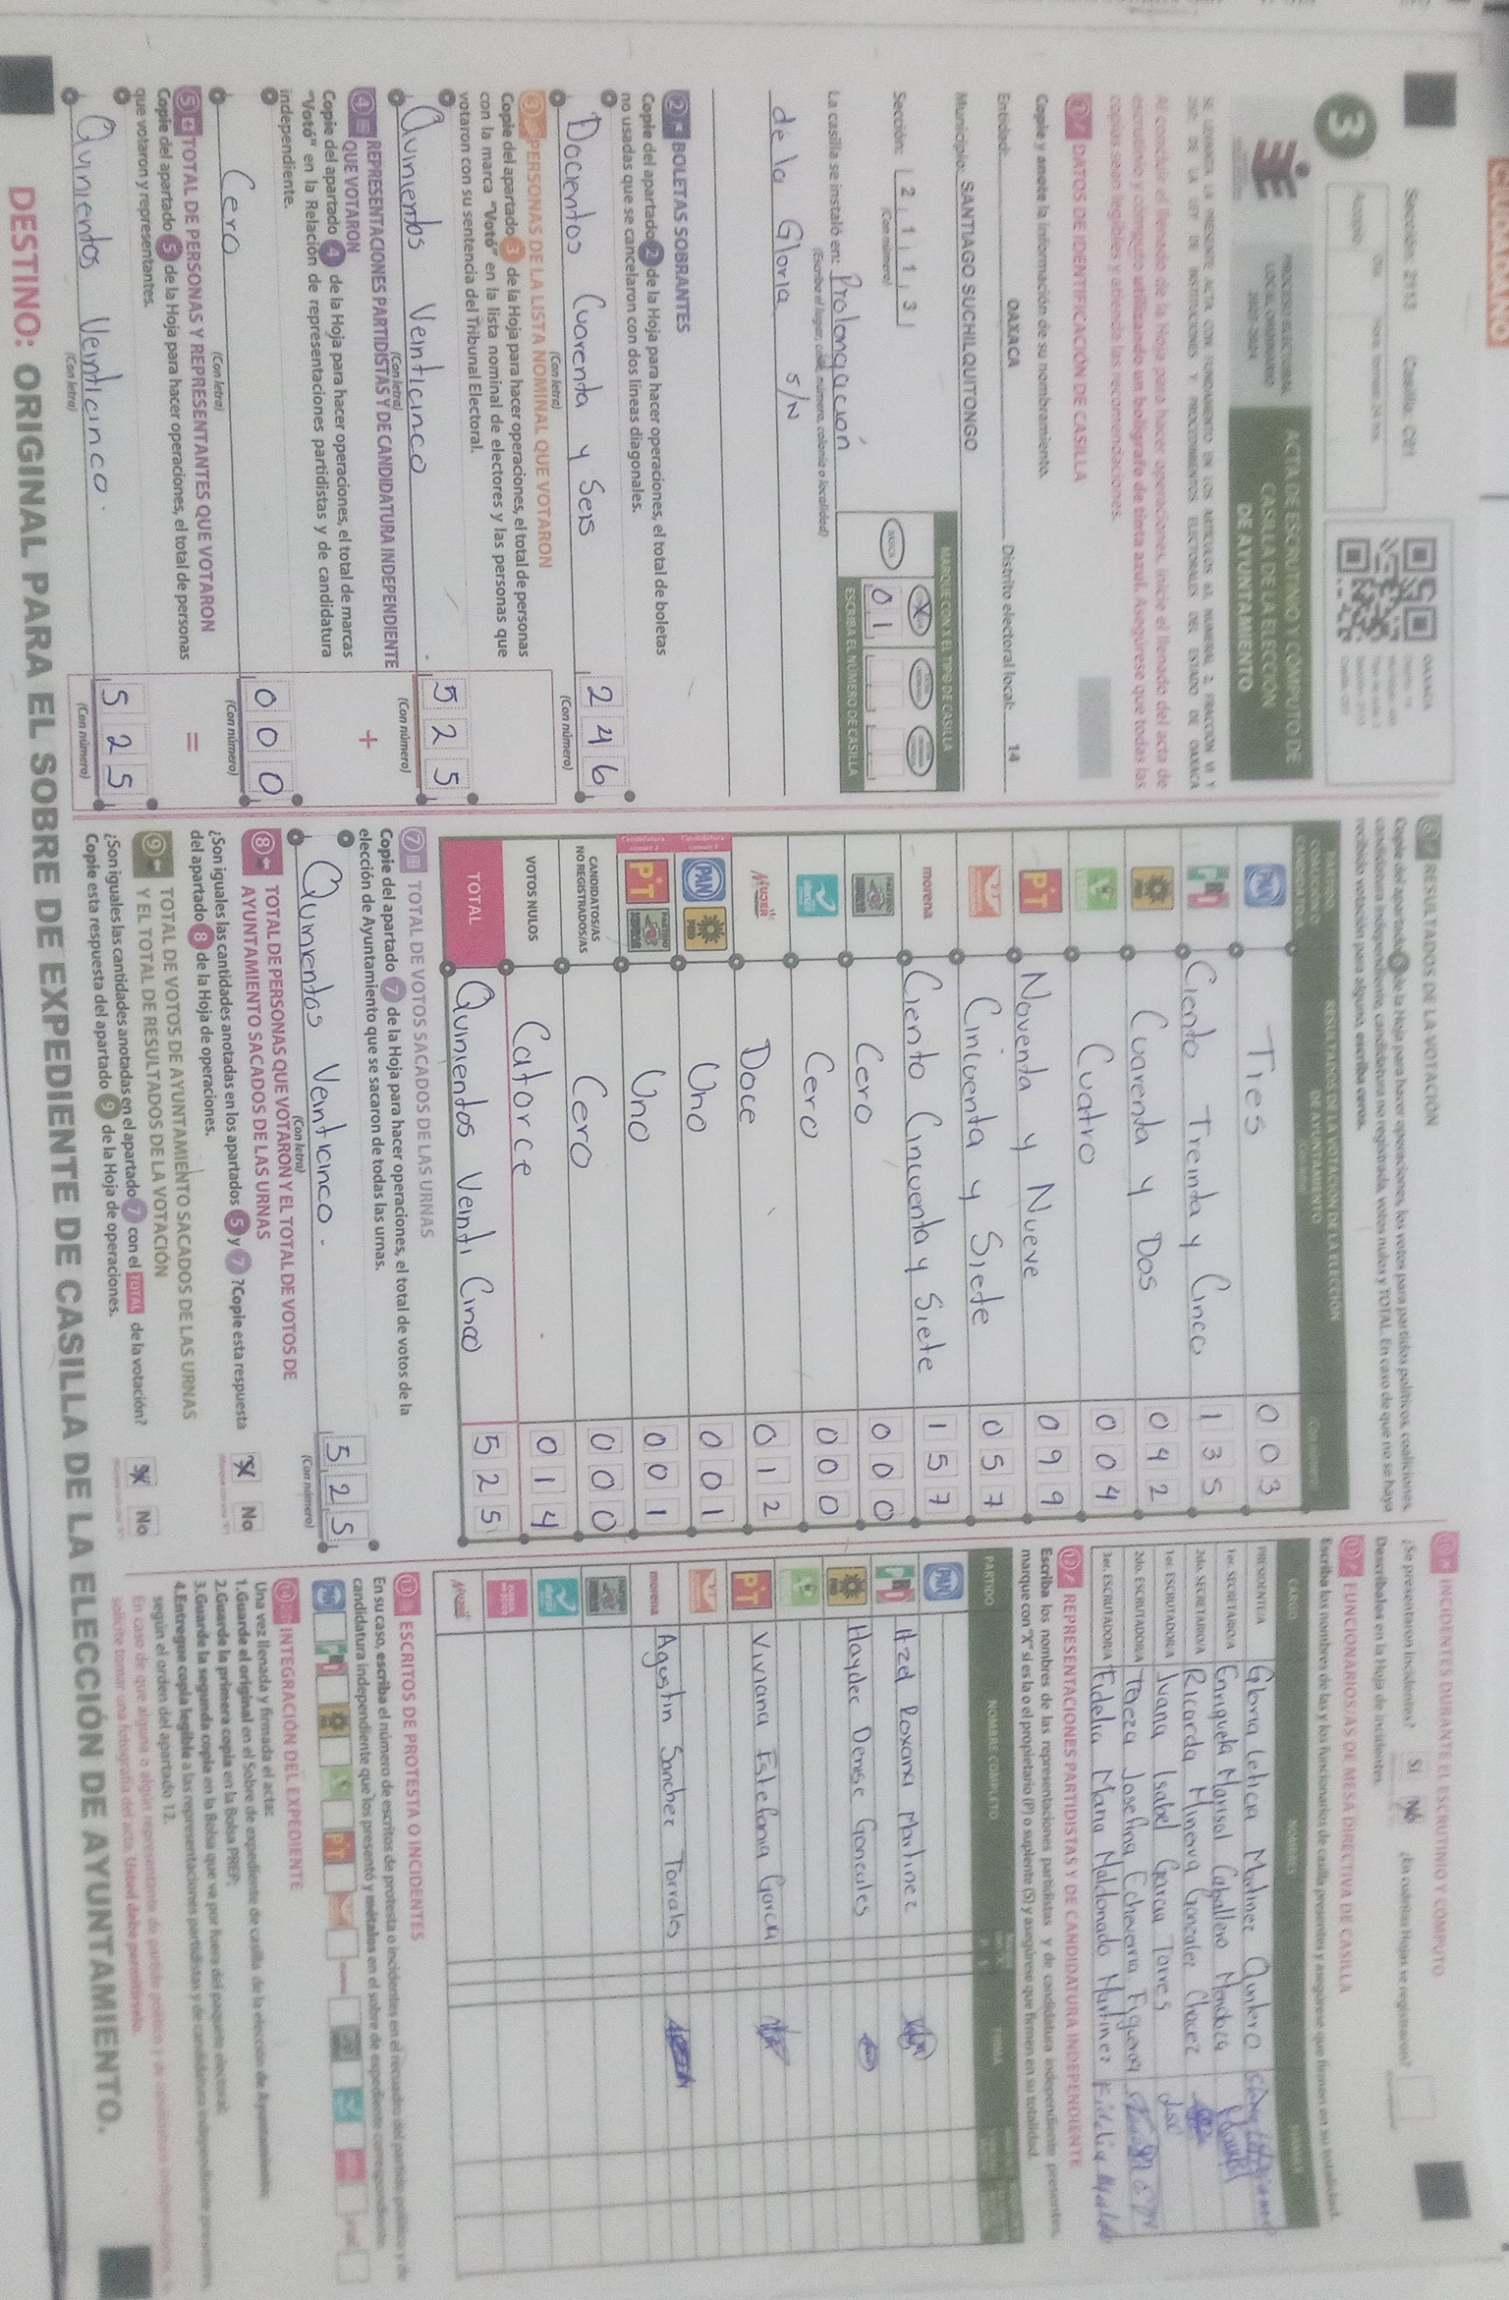 CIUDADANO
Sección: 2113 Casilla: C01
3
PROCESO ELECTORAL
LOCAL ORDINARIO
2023-2024
ACTA DE ESCRUTINIO Y CÓMPUTO DE
CASILLA DE LA ELECCIÓN
DE AYUNTAMIENTO
OAXACA
Al concluir el llenado de la Hoja para hacer operaciones, inicie el llenado del acta de
escrutinio y cómputo utilizando un bolígrafo de tinta azul. Asegúrese que todas las
copias sean legibles y atienda las recomendaciones.
1 DATOS DE IDENTIFICACIÓN DE CASILLA
Copie y anote la información de su nombramiento.
Entidad: OAXACA Distrito electoral local: 14
Municipio: SANTIAGO SUCHILQUITONGO
Sección: 2 1 1 3
(Con número)
MARQUE CON X EL TIPO DE CASILLA
BÁSICA X
0 1
ESCRIBA EL NÚMERO DE CASILLA
La casilla se instaló en: Prolongacion
(Escriba el lugar, calle, número, colonia o localidad)
de la Gloria S/N
2 BOLETAS SOBRANTES
Copie del apartado 2 de la Hoja para hacer operaciones, el total de boletas
no usadas que se cancelaron con dos líneas diagonales.
Docientos Cuarenta y Seis 2 4 6
(Con letra) (Con número)
3 PERSONAS DE LA LISTA NOMINAL QUE VOTARON
Copie del apartado 3 de la Hoja para hacer operaciones, el total de personas
con la marca "Votó" en la lista nominal de electores y las personas que
votaron con su sentencia del Tribunal Electoral.
Quinientos Veinticinco 5 2 5
(Con letra) (Con número)
4 REPRESENTACIONES PARTIDISTAS Y DE CANDIDATURA INDEPENDIENTE
QUE VOTARON +
Copie del apartado 4 de la Hoja para hacer operaciones, el total de marcas
"Votó" en la Relación de representaciones partidistas y de candidatura
independiente.
Cero 0 0 0
(Con letra) (Con número)
5 TOTAL DE PERSONAS Y REPRESENTANTES QUE VOTARON =
Copie del apartado 5 de la Hoja para hacer operaciones, el total de personas
que votaron y representantes.
Quinientos Veinticinco. 5 2 5
(Con letra) (Con número)
6 RESULTADOS DE LA VOTACIÓN
Copie del apartado 6 de la Hoja para hacer operaciones, los votos para partidos políticos, coaliciones,
candidatura independiente, candidatura no registrada, votos nulos y TOTAL. En caso de que no se haya
recibido votación para alguno, escriba ceros.
RESULTADOS DE LA VOTACIÓN DE LA ELECCIÓN
DE AYUNTAMIENTO
PAN Tres 0 0 3
PRI Ciento Treinta y Cinco 1 3 5
PRD Cuarenta y Dos 0 4 2
Cuatro 0 0 4
PT Noventa y Nueve 0 9 9
Cincuenta y Siete 0 5 7
morena Ciento Cincuenta y Siete 1 5 7
Cero 0 0 0
Cero 0 0 0
MUJER Doce 0 1 2
PAN PRD Uno 0 0 1
PT Uno 0 0 1
CANDIDATOS/AS
NO REGISTRADOS/AS Cero 0 0 0
VOTOS NULOS Catorce 0 1 4
TOTAL Quinientos Veinti Cinco 5 2 5
7 TOTAL DE VOTOS SACADOS DE LAS URNAS
Copie del apartado 7 de la Hoja para hacer operaciones, el total de votos de la
elección de Ayuntamiento que se sacaron de todas las urnas.
Quinientos Veinticinco. 5 2 5
(Con letra) (Con número)
8 TOTAL DE PERSONAS QUE VOTARON Y EL TOTAL DE VOTOS DE
AYUNTAMIENTO SACADOS DE LAS URNAS
¿Son iguales las cantidades anotadas en los apartados 5 y 7? Copie esta respuesta
del apartado 8 de la Hoja de operaciones. X No
9 TOTAL DE VOTOS DE AYUNTAMIENTO SACADOS DE LAS URNAS
Y EL TOTAL DE RESULTADOS DE LA VOTACIÓN
¿Son iguales las cantidades anotadas en el apartado 7 con el TOTAL de la votación?
Copie esta respuesta del apartado 9 de la Hoja de operaciones. X No
10 INCIDENTES DURANTE EL ESCRUTINIO Y CÓMPUTO
¿Se presentaron incidentes? SI No ¿En cuántas Hojas se registraron?
Descríbalos en la Hoja de incidentes.
11 FUNCIONARIOS/AS DE MESA DIRECTIVA DE CASILLA
Escriba los nombres de las y los funcionarios de casilla presentes y asegúrese que firmen en su totalidad.
CARGO NOMBRES FIRMAS
PRESIDENTE/A Gloria Leticia Martinez Quintero
1er. SECRETARIO/A Enriqueta Marisol Caballero Mendoza
2do. SECRETARIO/A Ricarda Minerva Gonzalez Chavez
1er. ESCRUTADOR/A Juana Isabel Garcia Torres
2do. ESCRUTADOR/A Tereza Josefina Echeverria Figueroa
3er. ESCRUTADOR/A Fidelia Maria Maldonado Martinez
12 REPRESENTACIONES PARTIDISTAS Y DE CANDIDATURA INDEPENDIENTE
Escriba los nombres de las representaciones partidistas y de candidatura independiente presentes,
marque con "X" si es la o el propietario (P) o suplente (S) y asegúrese que firmen en su totalidad.
PARTIDO NOMBRE COMPLETO FIRMA
PAN
PRI Itzel Roxana Martinez
PRD Haydee Denise Goncales
PT Viviana Estefania Garcia
morena Agustin Sanchez Torrales
13 ESCRITOS DE PROTESTA O INCIDENTES
En su caso, escriba el número de escritos de protesta o incidentes en el recuadro del partido político y de
candidatura independiente que los presentó y métalos en el sobre de expediente correspondiente.
14 INTEGRACIÓN DEL EXPEDIENTE
Una vez llenada y firmada el acta:
1.Guarde el original en el Sobre de expediente de casilla de la elección de Ayuntamiento.
2.Guarde la primera copia en la Bolsa PREP.
3.Guarde la segunda copia en la Bolsa que va por fuera del paquete electoral.
4.Entregue copia legible a las representaciones partidistas y de candidatura independiente presentes,
según el orden del apartado 12.
DESTINO: ORIGINAL PARA EL SOBRE DE EXPEDIENTE DE CASILLA DE LA ELECCIÓN DE AYUNTAMIENTO.